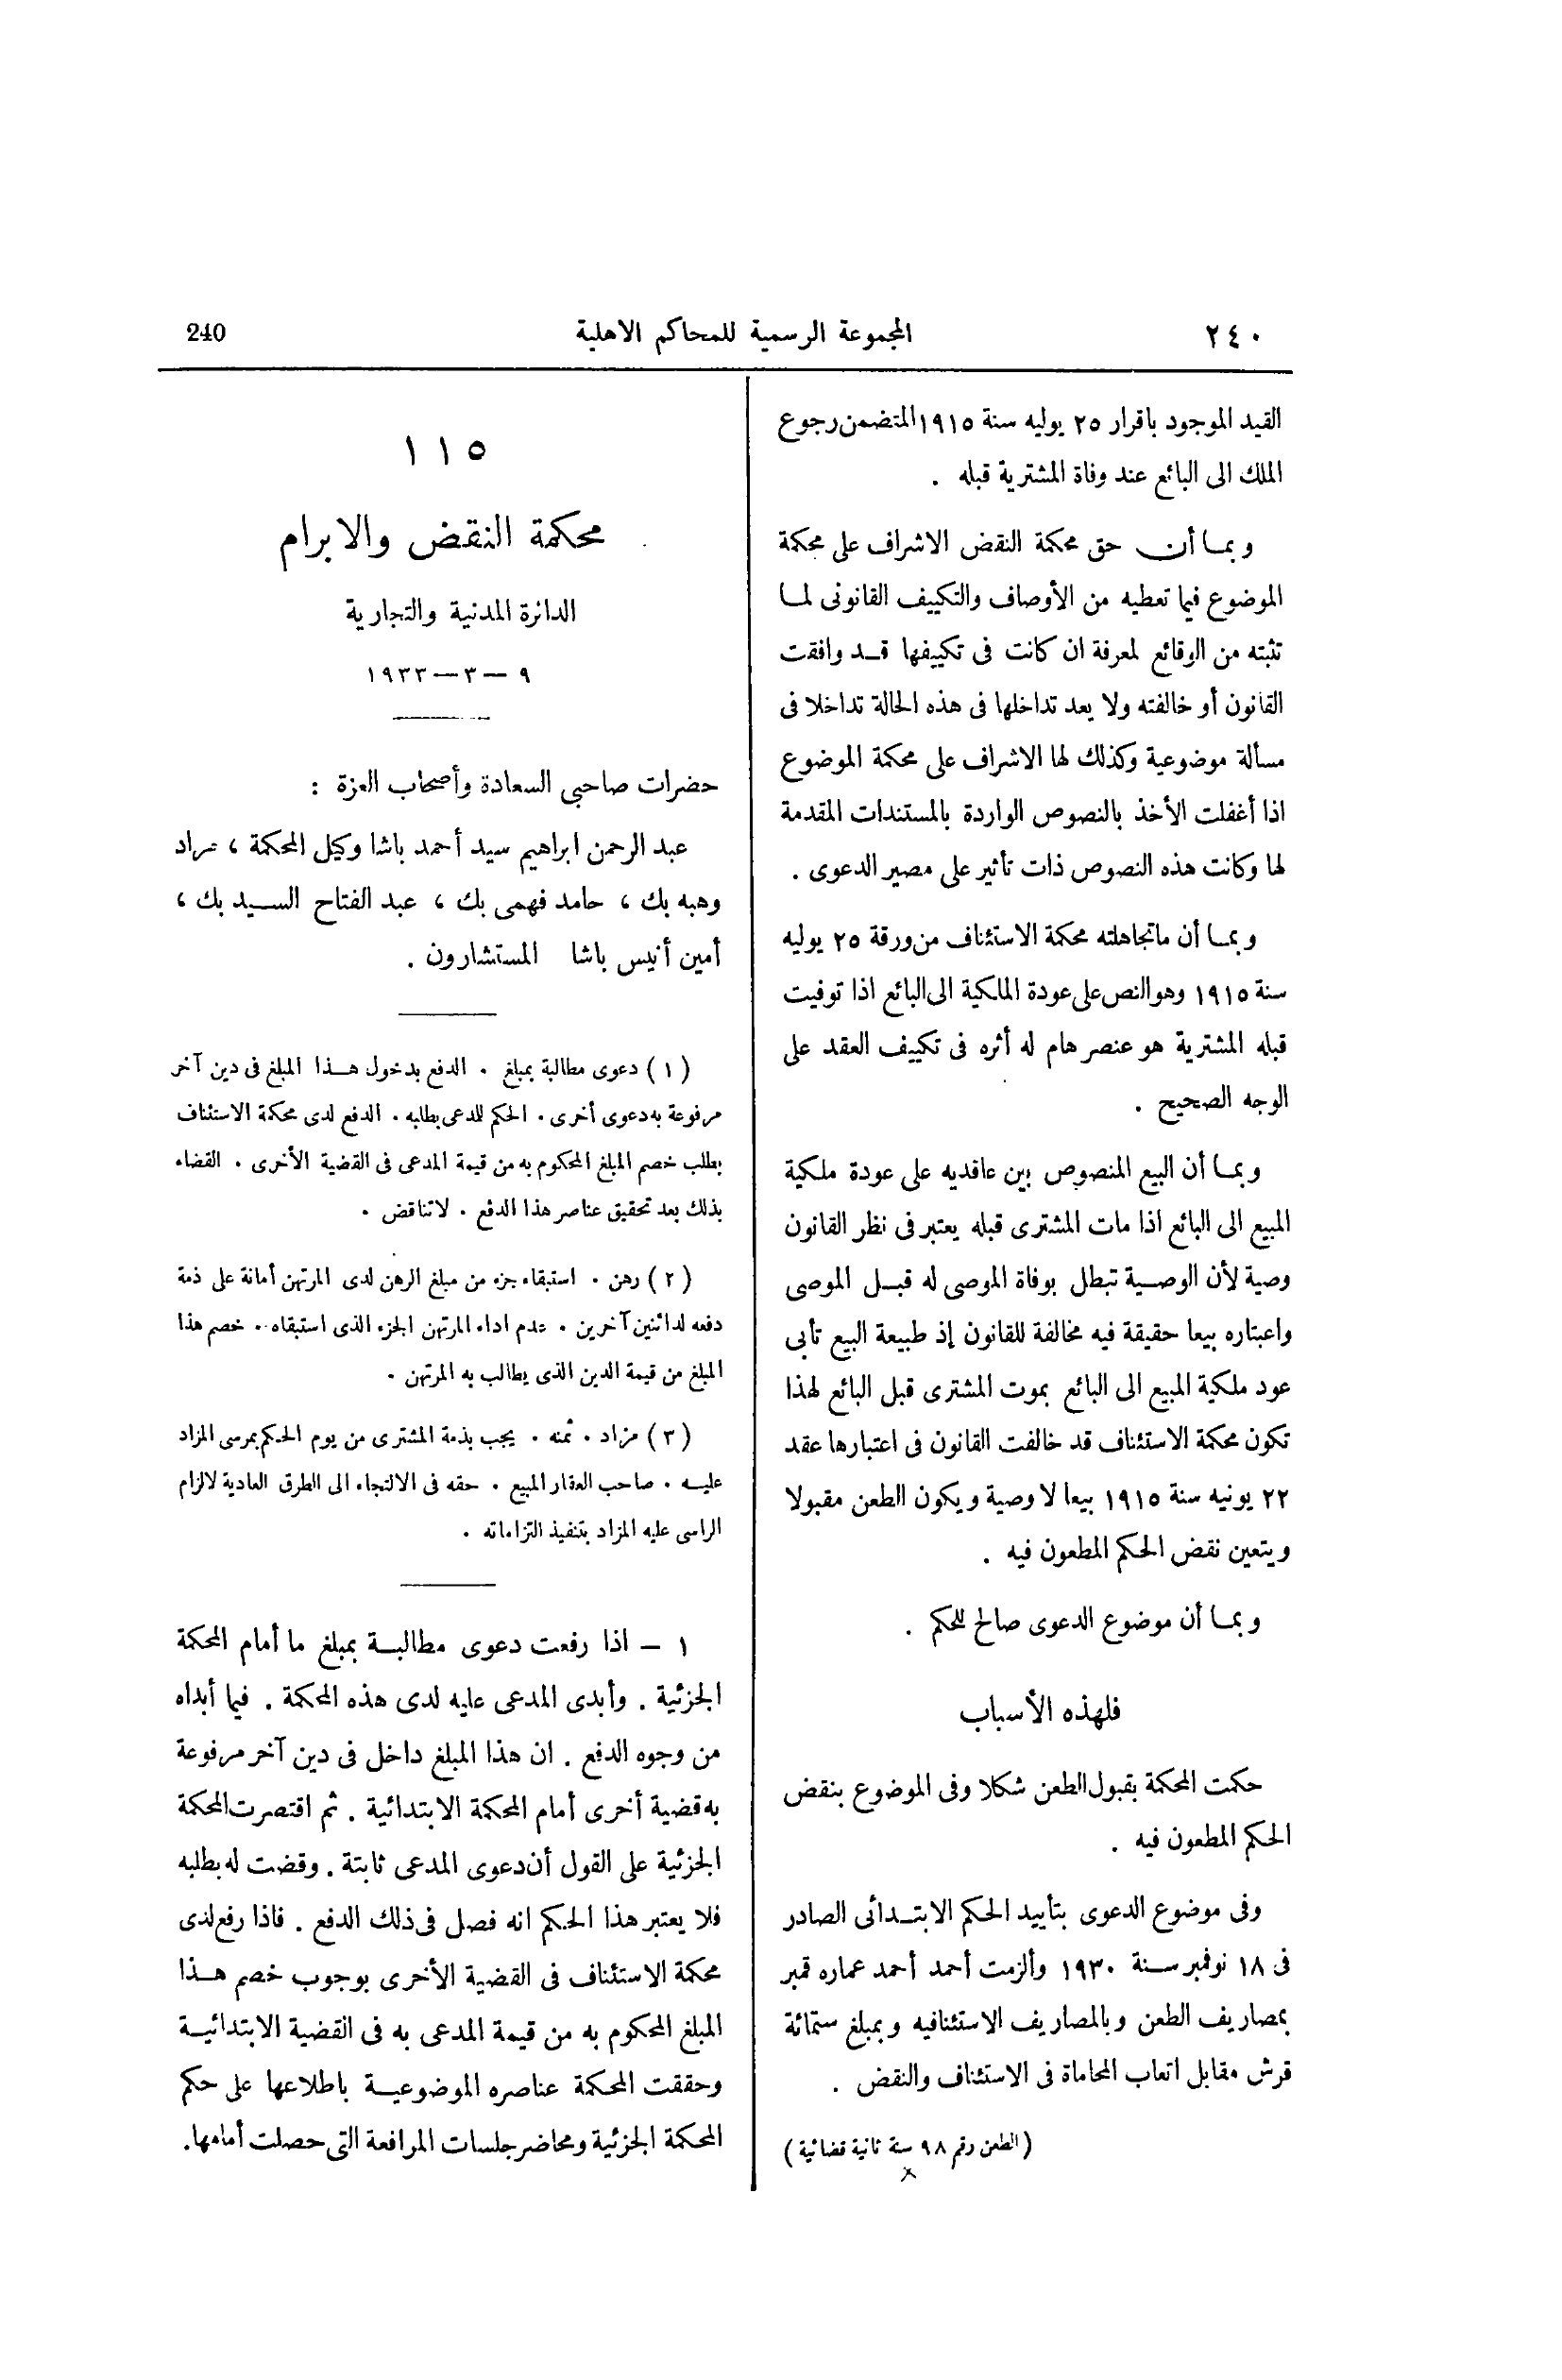 ٢٤٠
المجموعة الرسمية للمحاكم الاهلية
240
القيد الموجود باقرار ٢٥ يوليه سنة ١٩١٥ المتضمن رجوع
الملك الى البائع عند وفاة المشترية قبله .
وبما أن حق محكمة النقض الاشراف على محكمة
الموضوع فيما تعطيه من الأوصاف والتكييف القانونى لما
تثبته من الوقائع لمعرفة ان كانت فى تكييفها قد وافقت
القانون أو خالفته ولا يعد تداخلها فى هذه الحالة تداخلا فى
مسألة موضوعية وكذلك لها الاشراف على محكمة الموضوع
اذا أغفلت الأخذ بالنصوص الواردة بالمستندات المقدمة
لها وكانت هذه النصوص ذات تأثير على مصير الدعوى .
وبما أن ماتجاهلته محكمة الاستئناف من ورقة ٢٥ يوليه
سنة ١٩١٥ وهو النص على عودة الملكية الى البائع اذا توفيت
قبله المشترية هو عنصر هام له أثره فى تكييف العقد على
الوجه الصحيح .
وبما أن البيع المنصوص بين عاقديه على عودة ملكية
المبيع الى البائع اذا مات المشترى قبله يعتبر فى نظر القانون
وصية لأن الوصية تبطل بوفاة الموصى له قبل الموصى
واعبتاره بيعا حقيقة فيه مخالفة للقانون إذ طبيعة البيع تأبى
عود ملكية المبيع الى البائع بموت المشترى قبل البائع لهذا
تكون محكمة الاستئناف قد خالفت القانون فى اعتبارها عقد
٢٢ يونيه سنة ١٩١٥ بيعا لا وصية ويكون الطعن مقبولا
ويتعين نقض الحكم المطعون فيه .
وبما أن موضوع الدعوى صالح للحكم .
فلهذه الأسباب
حكمت المحكمة بقبول الطعن شكلا وفى الموضوع بنقض
الحكم المطعون فيه .
وفى موضوع الدعوى بتأييد الحكم الابتدائى الصادر
فى ١٨ نوفمبر سنة ١٩٣٠ وألزمت أحمد أحمد عماره قمبر
بمصاريف الطعن وبالمصاريف الاستئنافيه وبمبلغ ستمائة
قرش مقابل اتعاب المحاماة فى الاستئناف والنقض .
(الطعن رقم ٩٨ سنة ثانية قضائية)
١١٥
محكمة النقض والابرام
الدائرة المدنية والتجارية
٩ — ٣ — ١٩٣٣
حضرات صاحبى السعادة وأصحاب العزة :
عبد الرحمن ابراهيم سيد أحمد باشا وكيل المحكمة ، مراد
وهبه بك ، حامد فهمى بك ، عبد الفتاح السيد بك ،
أمين أنيس باشا المستشارون .
(١) دعوى مطالبة بمبلغ . الدفع بدخول هذا المبلغ فى دين آخر
مرفوعة به دعوى أخرى . الحكم للمدعى بطلبه . الدفع لدى محكمة الاستئناف
بطلب خصم المبلغ المحكوم به من قيمة المدعى فى القضية الأخرى . القضاء
بذلك بعد تحقيق عناصر هذا الدفع . لا تناقض .
(٢) رهن . استبقاء جزء من مبلغ الرهن لدى المرتهن أمانة على ذمة
دفعه لدائنين آخرين . عدم اداء المرتهن الجزء الذى استبقاه . خصم هذا
المبلغ من قيمة الدين الذى يطالب به المرتهن .
(٣) مزاد . ثمنه . يجب بذمة المشترى من يوم الحكم بمرسى المزاد
عليه . صاحب العقار المبيع . حقه فى الالتجاء الى الطرق العادية لالزام
الراسى عليه المزاد بتنفيذ التزاماته .
١ – اذا رفعت دعوى مطالبة بمبلغ ما أمام المحكمة
الجزئية . وأبدى المدعى عليه لدى هذه المحكمة . فيما أبداه
من وجوه الدفع . ان هذا المبلغ داخل فى دين آخر مرفوعة
به قضية أخرى أمام المحكمة الابتدائية . ثم اقتصرت المحكمة
الجزئية على القول أن دعوى المدعى ثابتة . وقضت له بطلبه
فلا يعتبر هذا الحكم انه فصل فى ذلك الدفع . فاذا رفع لدى
محكمة الاستئناف فى القضية الأخرى بوجوب خصم هذا
المبلغ المحكوم به من قيمة المدعى به فى القضية الابتدائية
وحققت المحكمة عناصره الموضوعية باطلاعها على حكم
المحكمة الجزئية ومحاضر جلسات المرافعة التى حصلت أمامها.